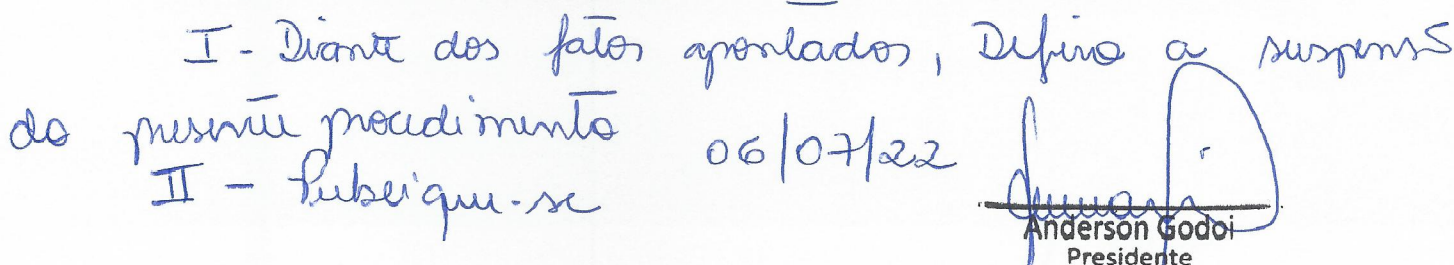 I - Diante dos fatos apontados, Defiro a suspensã
do presente procedimento 06/07/22
II - Publique-se
Anderson Godoi
Presidente